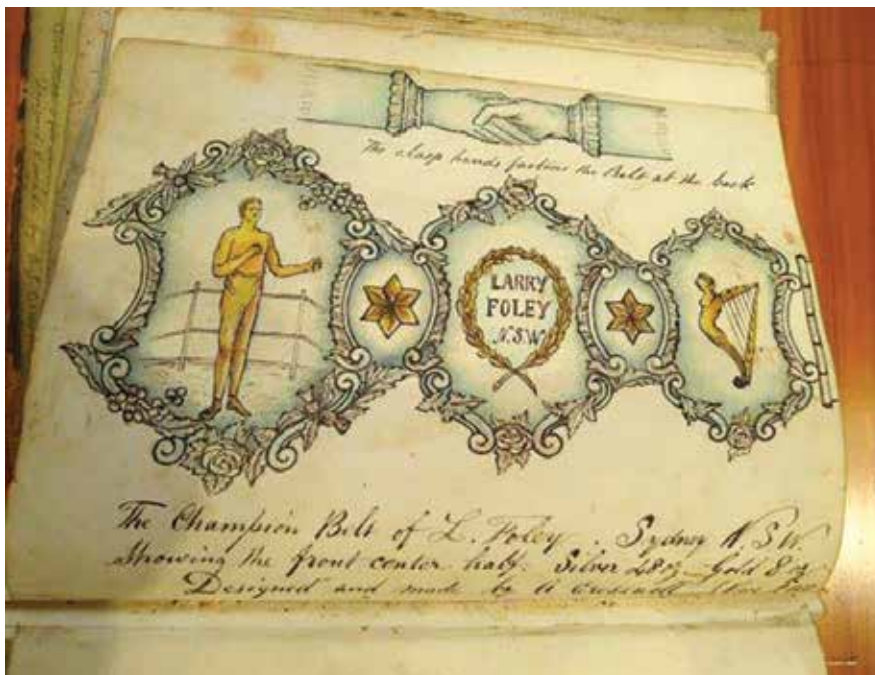 The clasp hands fastins the Belt at the back
LARRY
FOLEY
N.S.W
The Champion Belt of L. Foley. Sydney N.S.W.
Showing the front center half. Silver 48oz Gold 8oz
Designed and made by A